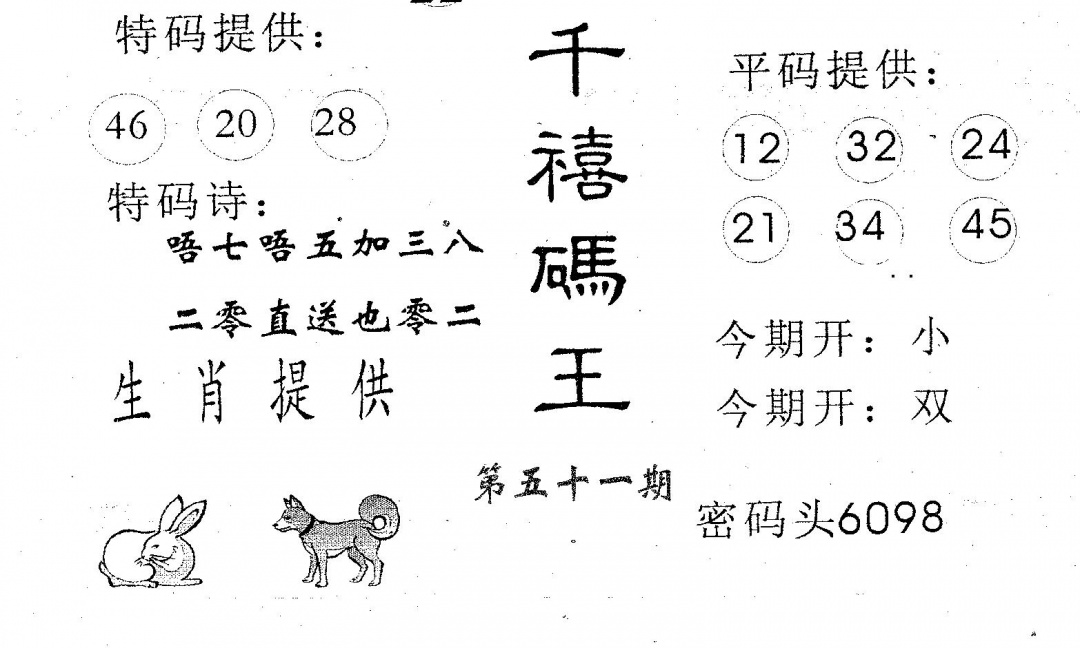 特码提供：
46 20 28
特码诗：
唔七唔五加三八
二零直送也零二
生肖提供
千禧碼王
第五十一期
平码提供：
12 32 24
21 34 45
今期开：小
今期开：双
密码头6098